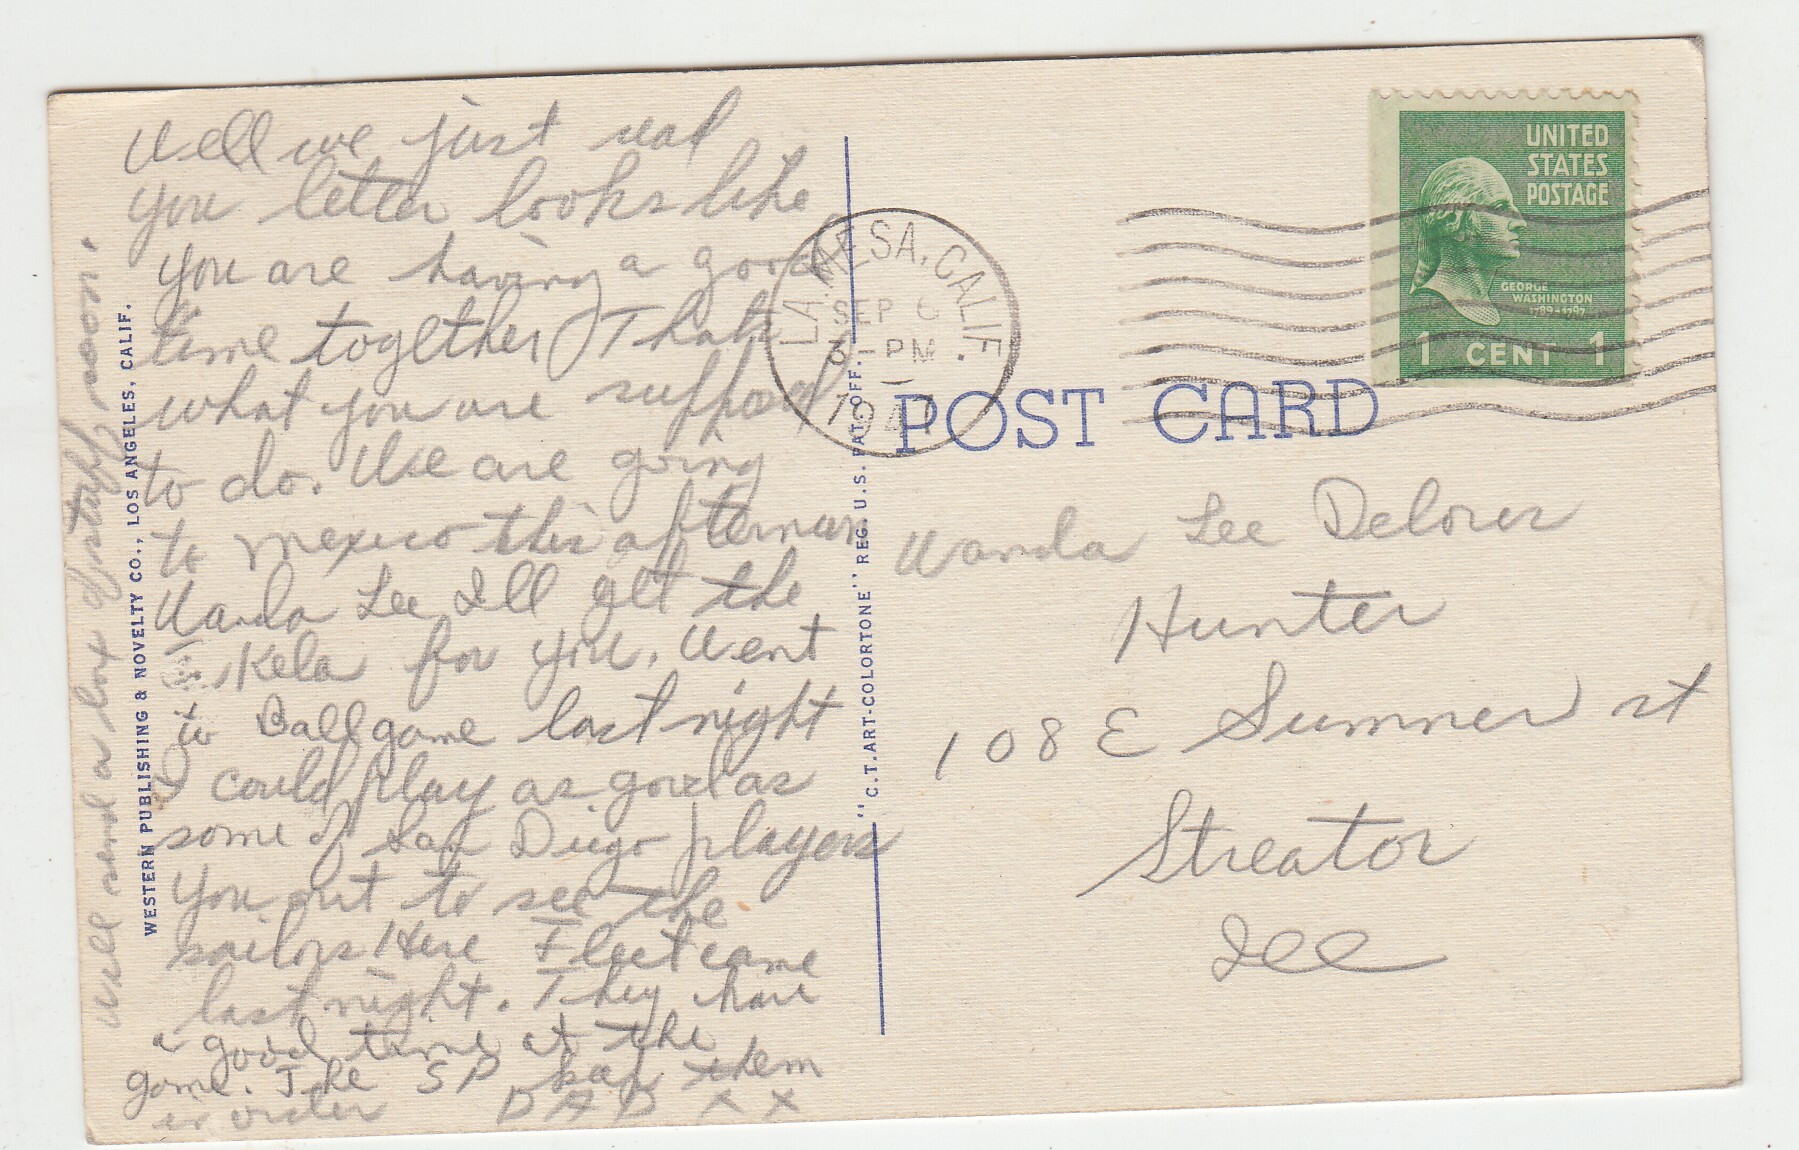 Well we just read
you letter looks like
you are having a good
time together Thats
what you are suppood
to do. We are going
to mexico this afternoon
Wanda Lee Ill get the
Kela for you. Went
to Ball game last night
I could play as good as
some of San Diego players
You out to see the
sailors Here Fleet came
last night. They have
a good time at the
game. The SP kap them
in order DAD X X
Will send a box of stuff soon.
WESTERN PUBLISHING & NOVELTY CO., LOS ANGELES, CALIF.
"C.T. ART-COLORTONE" REG. U.S. PAT. OFF.
LA MESA, CALIF.
SEP 6
3 - PM
1941
UNITED
STATES
POSTAGE
GEORGE
WASHINGTON
1789-1797
1 CENT 1
POST CARD
Wanda Lee Delores
Hunter
108 E Sumner st
Streator
Ill